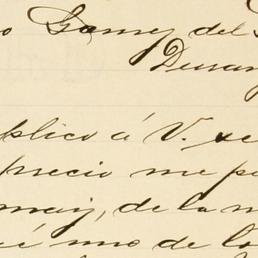 o Gomez del
Duran
plico á V. se
precio me p
may, de la m
ué uno de lo